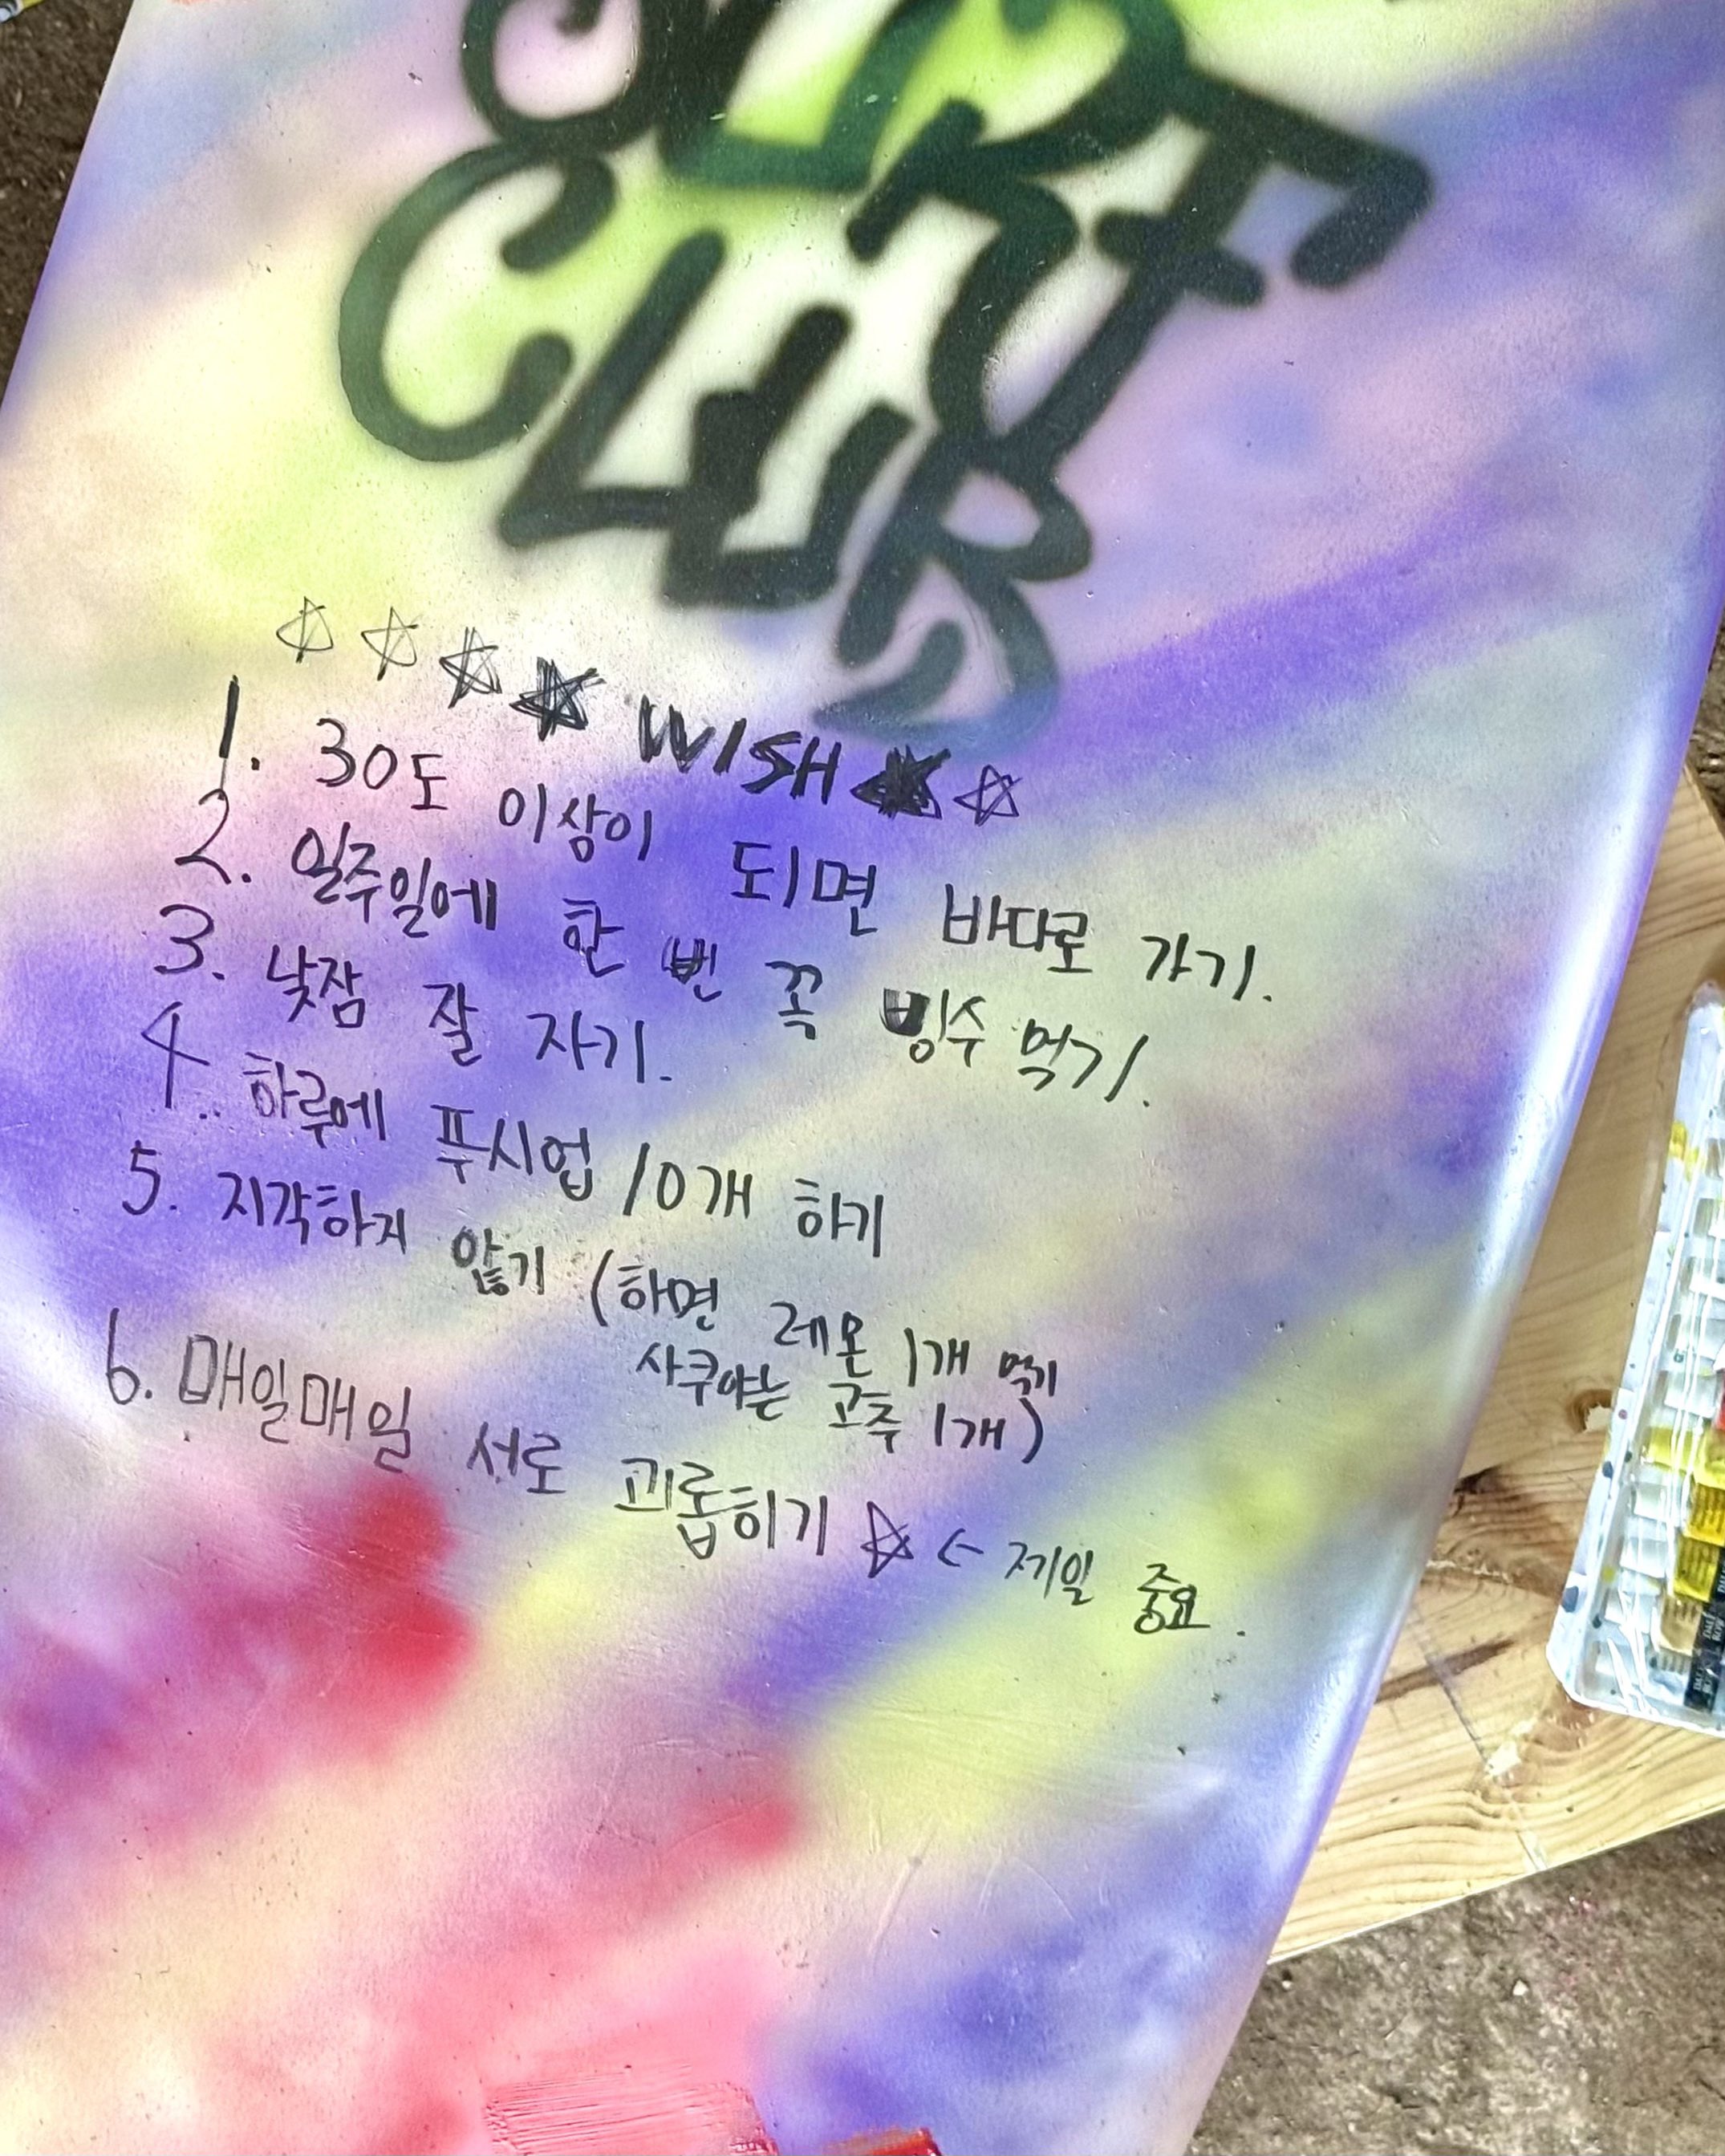 CLUB
☆ ☆ ☆ ★ WISH ★ ☆
1. 30도 이상이 되면 바다로 가기.
2. 일주일에 한 번 꼭 빙수 먹기.
3. 낮잠 잘 자기.
4. 하루에 푸시업 10개 하기
5. 지각하지 않기 (하면 레몬 1개 먹기
사쿠야는 고추 1개)
6. 매일매일 서로 괴롭히기 ☆ ← 제일 중요.